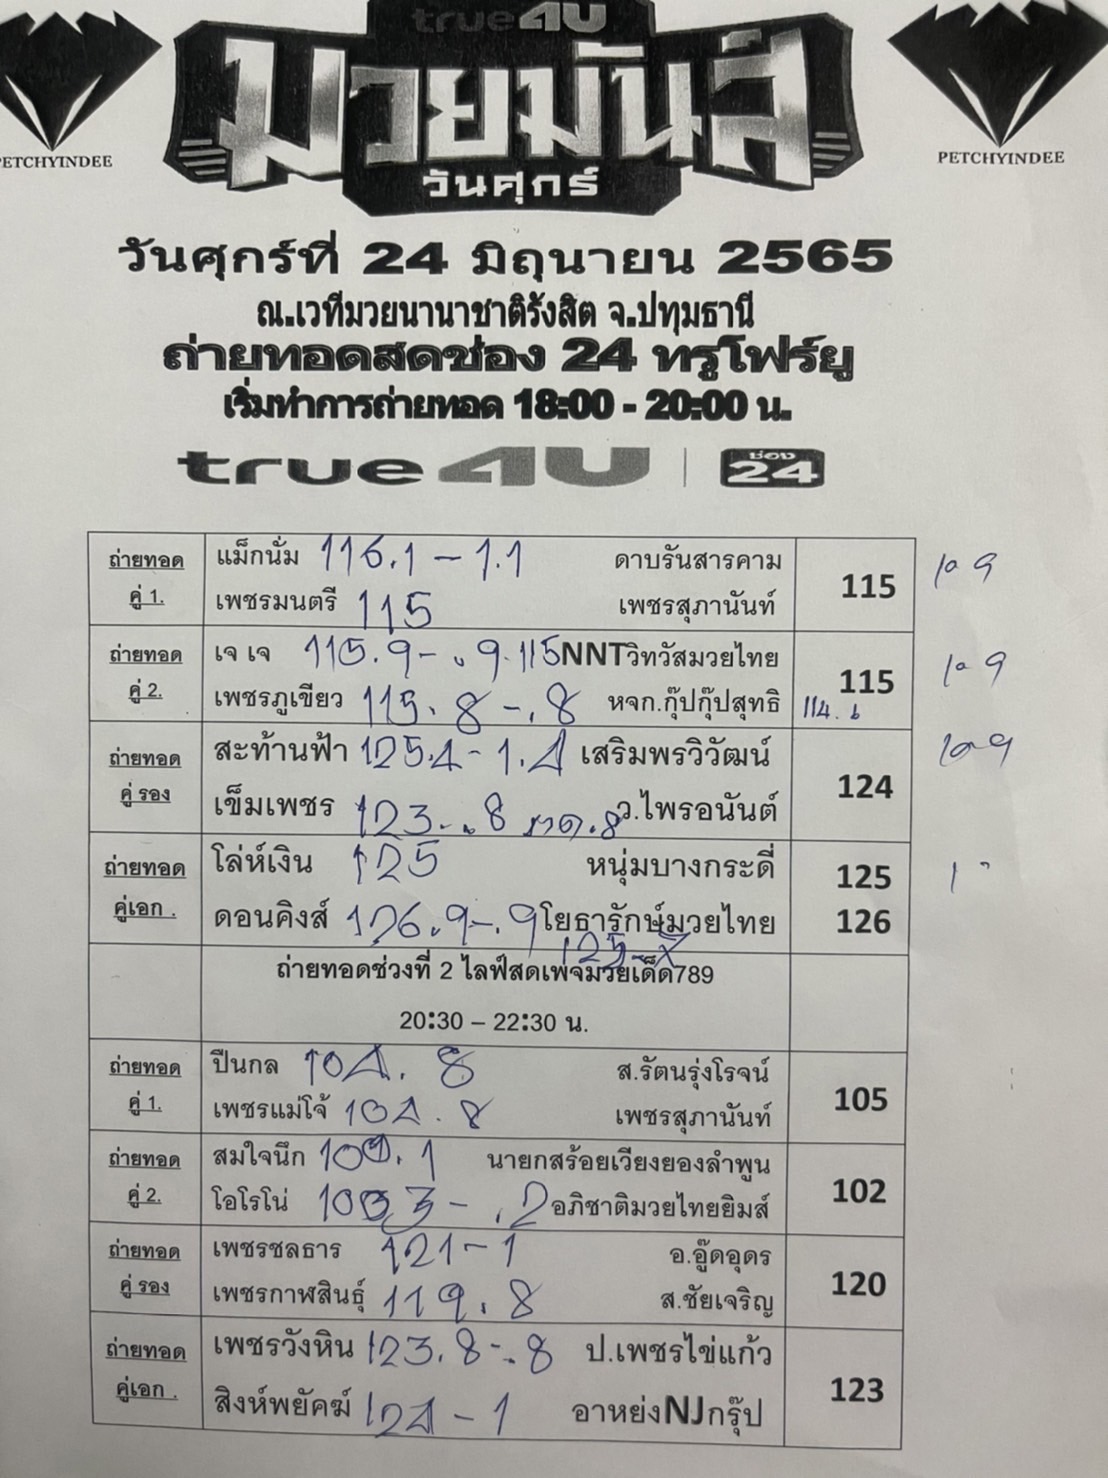 true4U
มวยมันส์
วันศุกร์
PETCHYINDEE
PETCHYINDEE
วันศุกร์ที่ 24 มิถุนายน 2565
ณ.เวทีมวยนานาชาติรังสิต จ.ปทุมธานี
ถ่ายทอดสดช่อง 24 ทรูโฟร์ยู
เริ่มทำการถ่ายทอด 18:00 - 20:00 น.
true4U | ช่อง 24
ถ่ายทอด แม็กนั่ม 116.1 - 1.1 ดาบรันสารคาม
คู่ 1. เพชรมนตรี 115 เพชรสุภานันท์ 115
ถ่ายทอด เจ เจ 115.9 - .9 115 NNTวิทวัสมวยไทย
คู่ 2. เพชรภูเขียว 115.8 - .8 หจก.กุ๊ปกุ๊ปสุทธิ 115
114.6
ถ่ายทอด สะท้านฟ้า 125.4 - 1.4 เสริมพรวิวัฒน์
คู่ รอง เข็มเพชร 123..8 ว.ไพรอนันต์ 124
ถ่ายทอด โล่ห์เงิน 125 หนุ่มบางกระดี่ 125
คู่เอก . ดอนคิงส์ 126.9 - .9 โยธารักษ์มวยไทย 126
ถ่ายทอดช่วงที่ 2 ไลฟ์สดเพจมวยเด็ด789
20:30 – 22:30 น.
ถ่ายทอด ปืนกล 104.8 ส.รัตนรุ่งโรจน์
คู่ 1. เพชรแม่โจ้ 104.8 เพชรสุภานันท์ 105
ถ่ายทอด สมใจนึก 101.1 นายกสร้อยเวียงยองลำพูน
คู่ 2. โอโรโน่ - .2 อภิชาติมวยไทยยิมส์ 102
ถ่ายทอด เพชรชลธาร 121 - 1 อ.อู๊ดอุดร
คู่ รอง เพชรกาฬสินธุ์ 119.8 ส.ชัยเจริญ 120
ถ่ายทอด เพชรวังหิน 123.8 - .8 ป.เพชรไข่แก้ว
คู่เอก . สิงห์พยัคฆ์ 124 - 1 อาหย่งNJกรุ๊ป 123